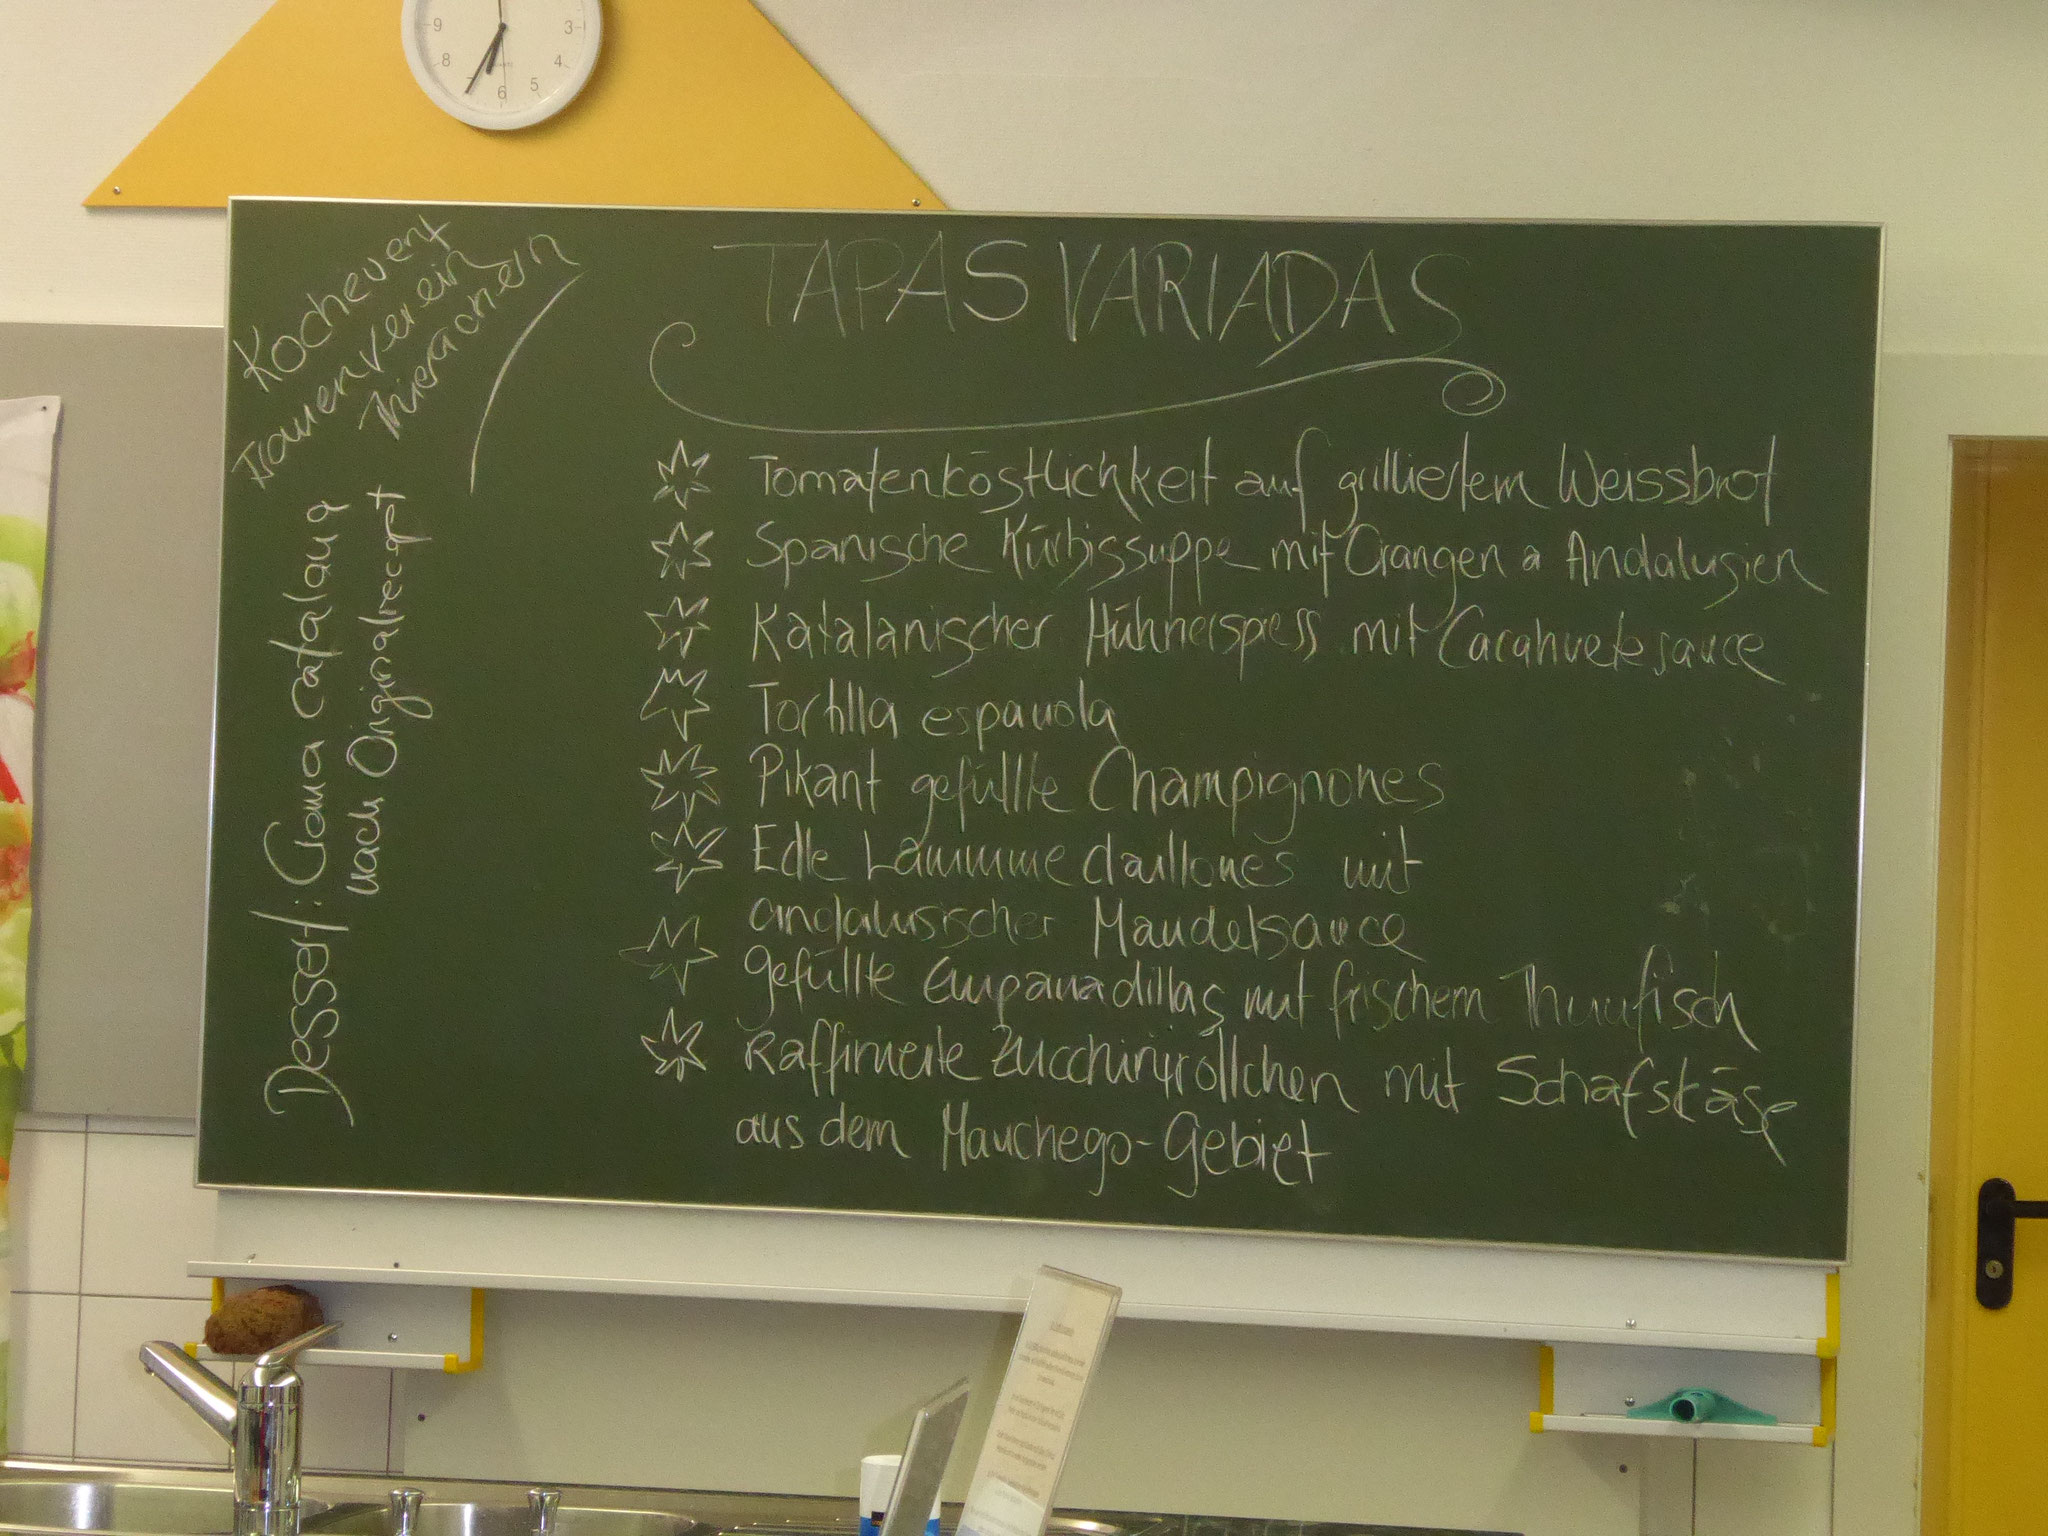 9
3
8
4
7
5
6
Kochevent
Frauenverein
Thierachern
TAPAS VARIADAS
Tomatenköstlichkeit auf grilliertem Weissbrot
Spanische Kürbissuppe mit Orangen a Andalusien
Katalanischer Hühnerspiess mit Cacahuetesauce
Tortilla espanola
Pikant gefüllte Champignones
Edle Lammmedaillones mit
andalusischer Mandelsauce
gefüllte Empanadillas mit frischem Thunfisch
Raffinierte Zucchiniröllchen mit Schafskäse
aus dem Manchego-Gebiet
Dessert: Crema catalana
nach Originalrecept